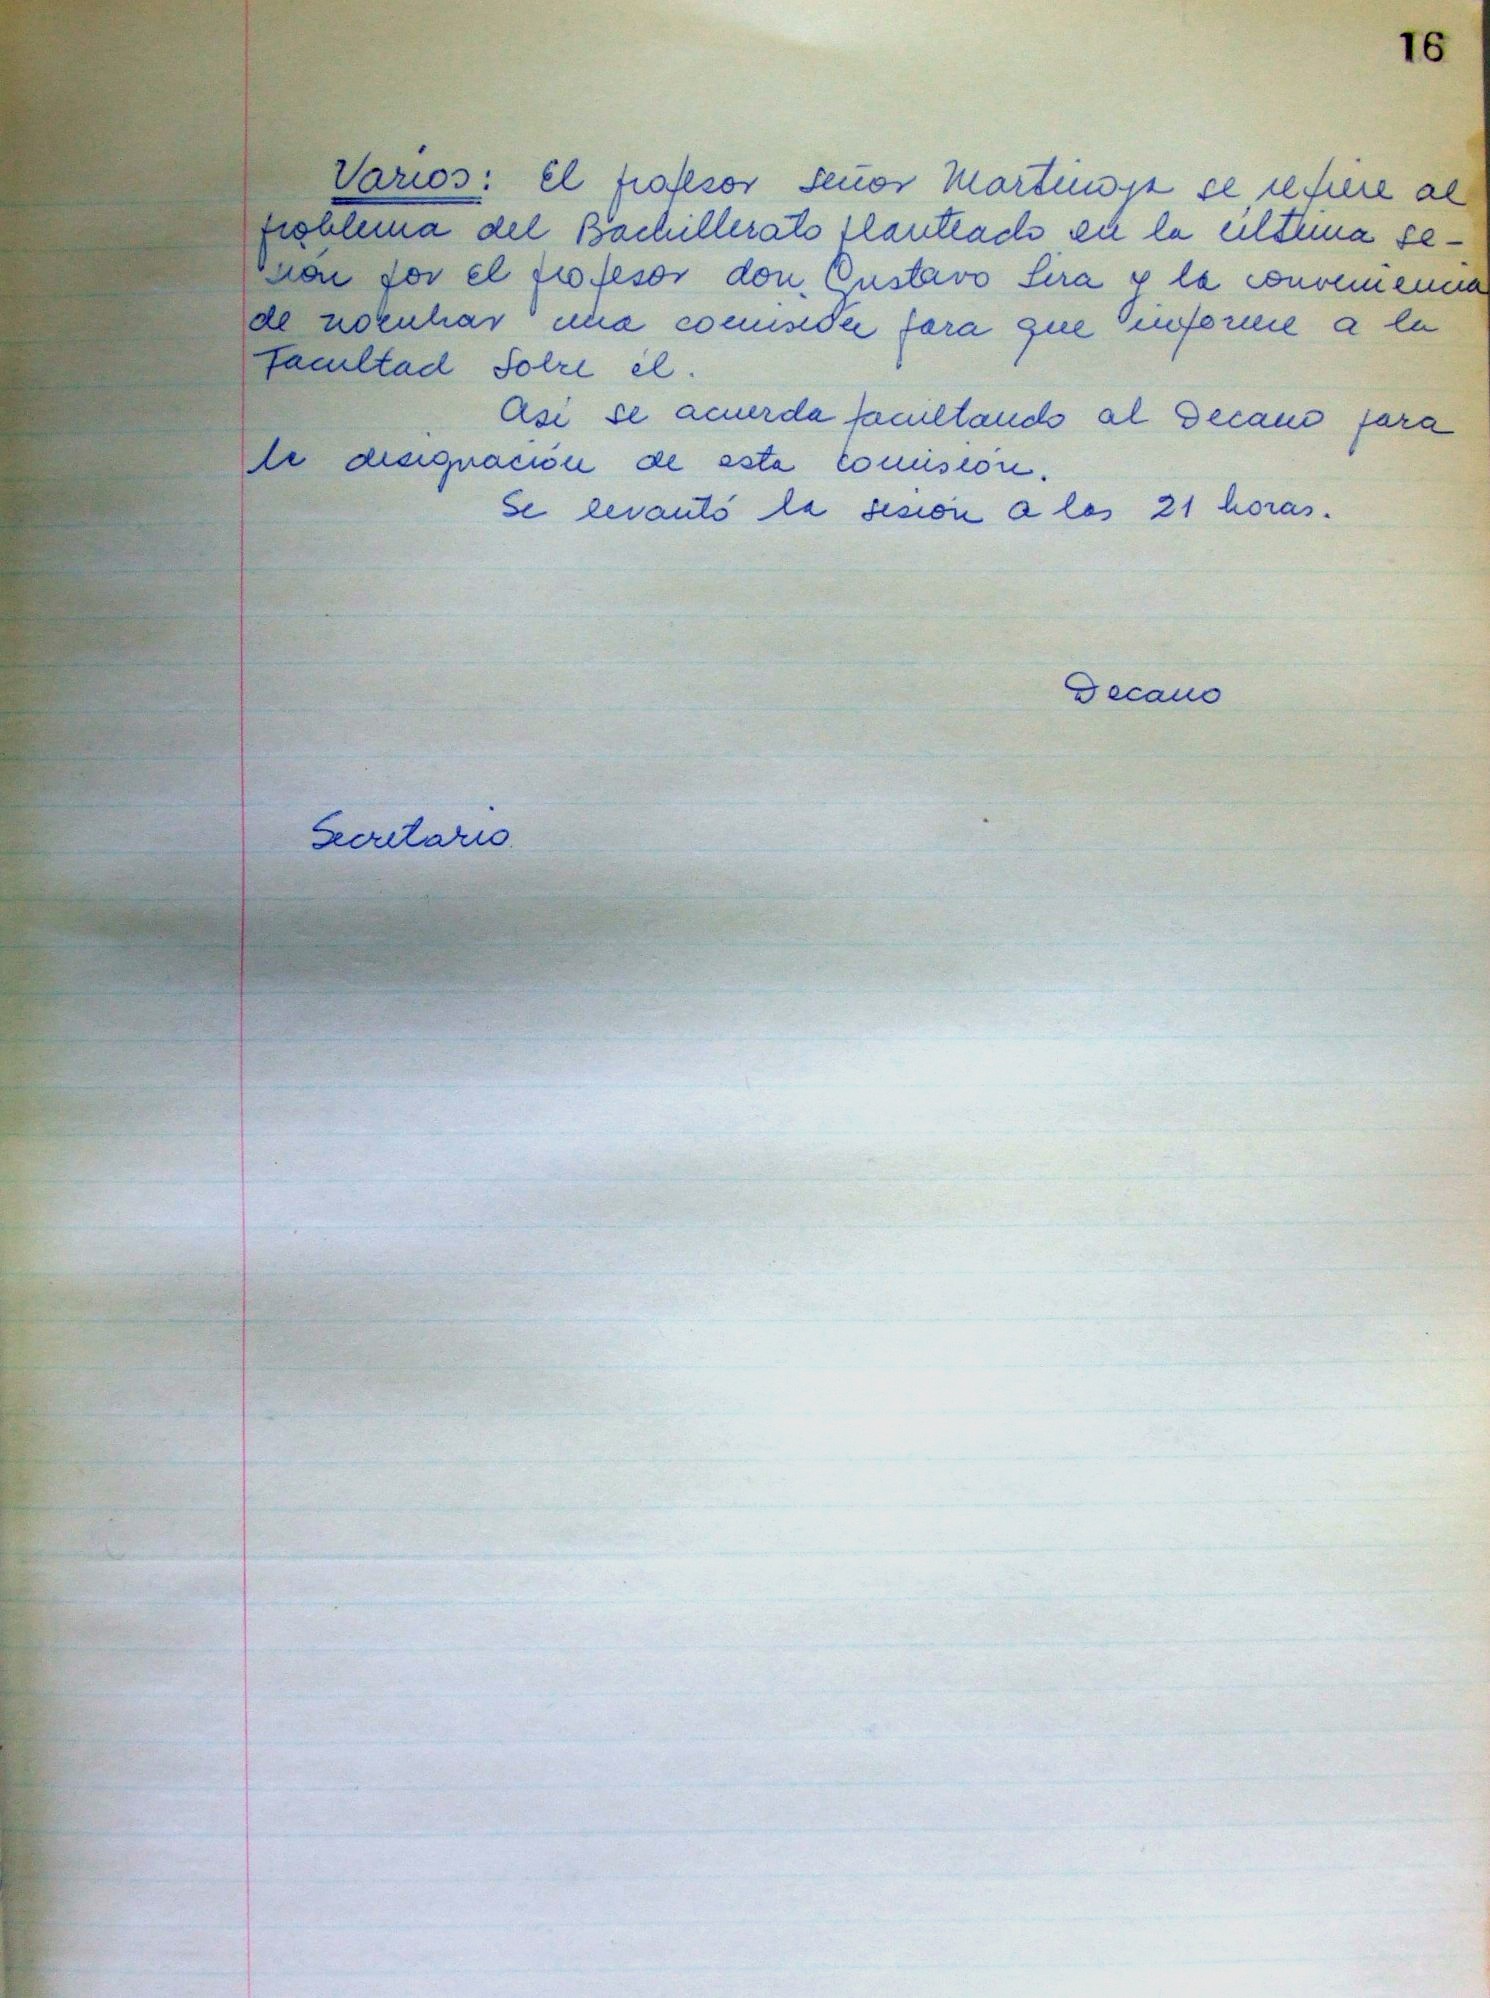 16
Varios: El profesor señor Martinoya se refiere al
problema del Bachillerato planteado en la última se-
sión por el profesor don Gustavo Lira y la conveniencia
de nombrar una comisión para que informe a la
Facultad sobre él.
Así se acuerda facultando al Decano para
la designación de esta comisión.
Se levantó la sesión a las 21 horas.
Decano
Secretario